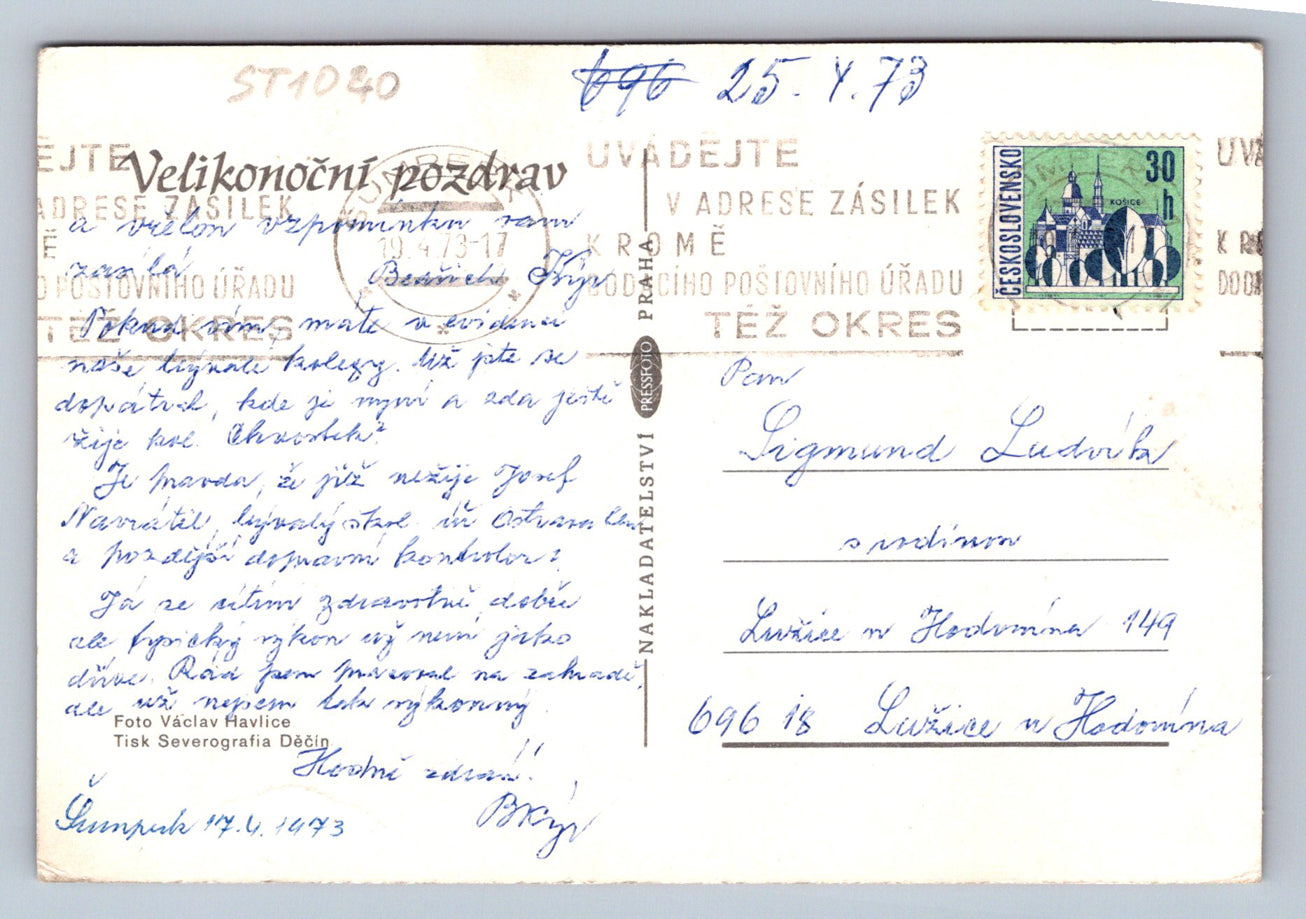 ST1020
696 25. 4. 73
Velikonoční pozdrav
a vřelou vzpomínku vám
zasílá Bedřich Kýr
Pokud vím, máte v evidenci
naše bývalé kolegy. Už jste se
dopátral, kde je nyní a zda ještě
žije kol. Chvostek?
Je pravda, že již nežije Josef
Navrátil, bývalý škol. úř. Ostrava
a pozdější dopravní kontrolor?
Já se cítím zdravotně dobře
ale fysický výkon už není jako
dříve. Rád jsem pracoval na zahradě,
ale už nejsem tak výkonný.
Foto Václav Havlice
Tisk Severografia Děčín
Hodně zdraví!
BKýr
Šumperk 17.4.1973
NAKLADATELSTVÍ PRESSFOTO PRAHA
EJTE
ADRESE ZÁSILEK
POŠTOVNÍHO ÚŘADU
TÉŽ OKRES
ŠUMPERK
19.4.73-17
UVÁDĚJTE
V ADRESE ZÁSILEK
KROMĚ
DODACÍHO POŠTOVNÍHO ÚŘADU
TÉŽ OKRES
ČESKOSLOVENSKO
30 h
KOŠICE
Pan
Sigmund Ludvík
s rodinou
Lužice u Hodonína 149
696 18 Lužice u Hodonína